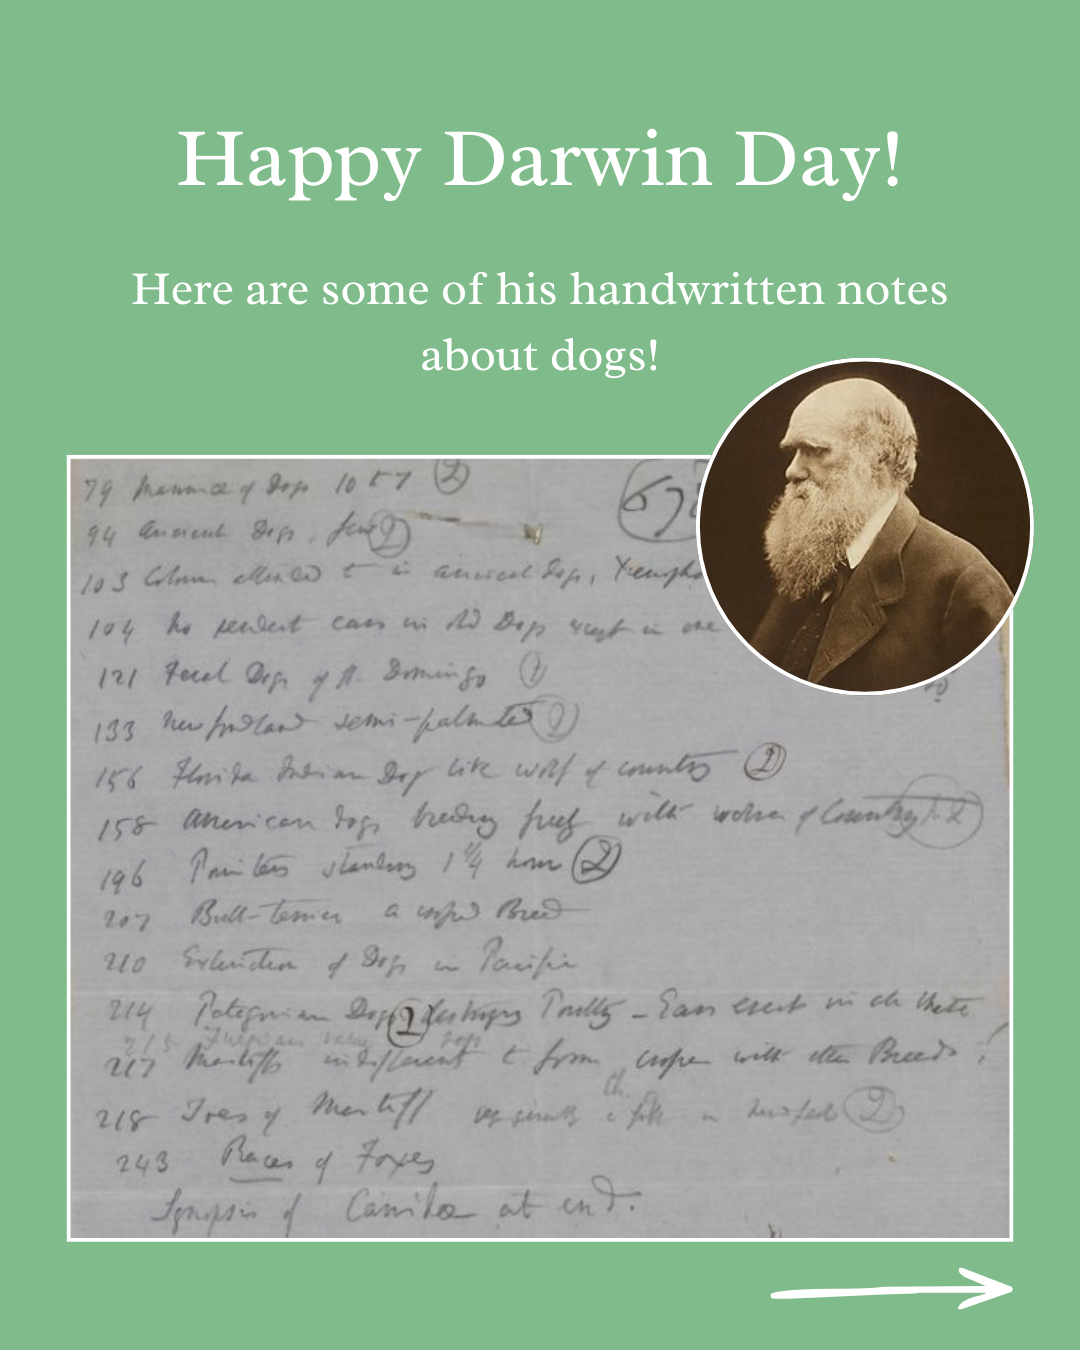 Happy Darwin Day!
Here are some of his handwritten notes
about dogs!
79 of Dogs 10 to 7 (2)
67
94 Ancient Dogs, few (2)
103 Colour alluded to in ancient dogs,
104 no pendent ears in old Dogs except in one
121 Feral Dogs of St. Domingo
133 Newfoundland semi-palmated (2)
156 Florida Indian Dog like wolf of country (2)
158 American dogs breeding freely with wolves of Country (2)
196 Pointers standing 1 1/4 hour (2)
207 Bull-terrier a crossed Breed
210 Extinction of Dogs in Pacific
214 Patagonian Dogs (2) destroying Poultry – Ears erect in all these
215 Fuegian dogs
217 Mastiffs indifferent to from with other Breeds!
218 Toes of Mastiff in (2)
243 Races of Foxes
Synopsis of Canidae at end.